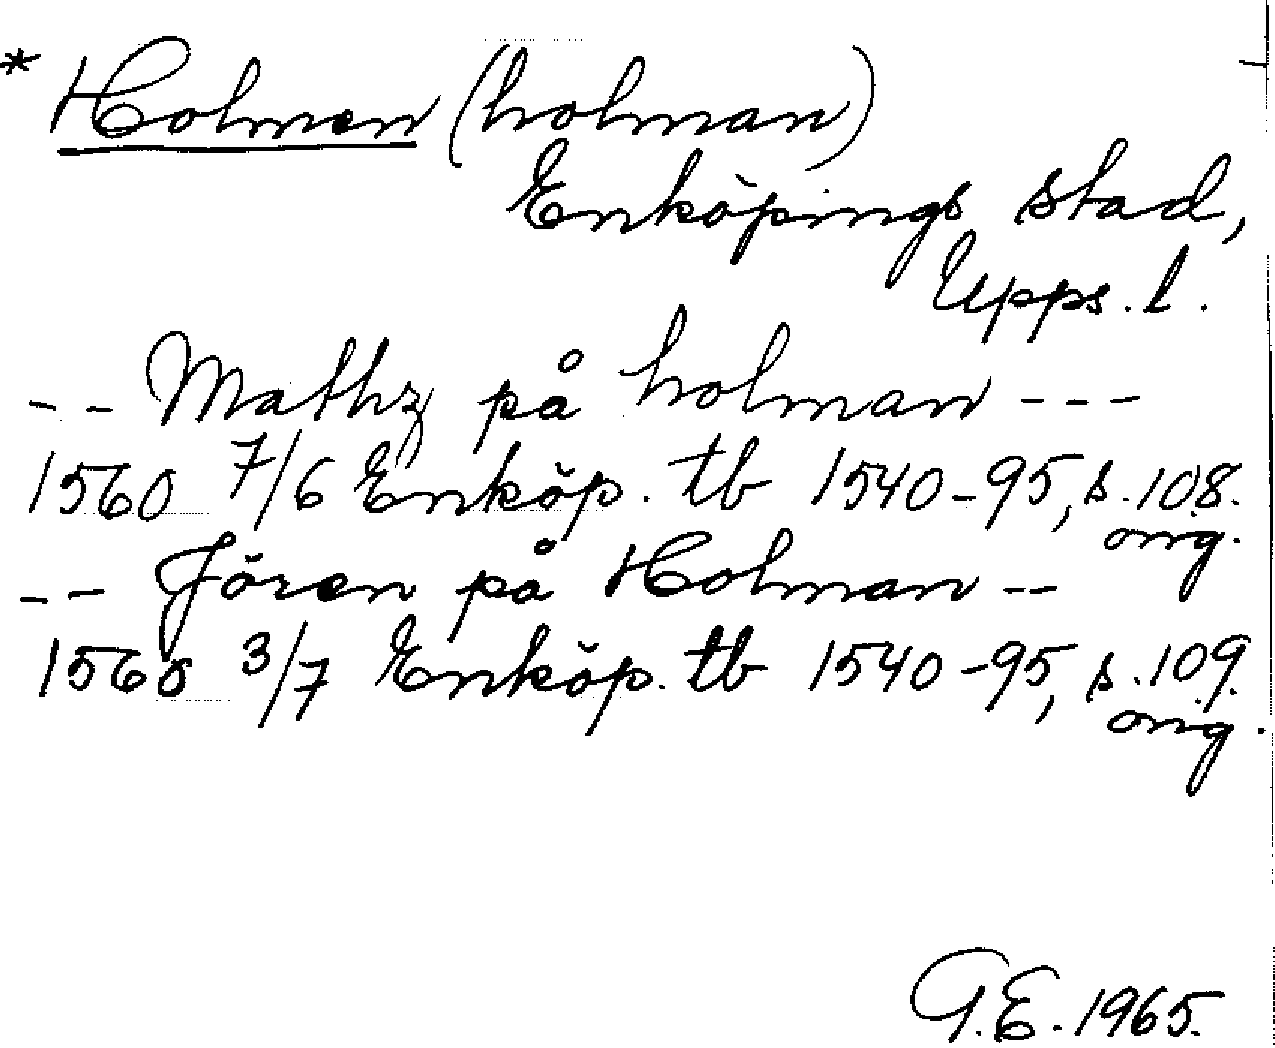 * Holmen (holman)
Enköpings stad,
Upps. l.
-- Mathz på holman ---
1560 7/6 Enköp. tb 1540-95, s. 108.
orig.
-- Jören på Holman --
1560 3/7 Enköp. tb 1540-95, s. 109.
orig.
G.E. 1965.